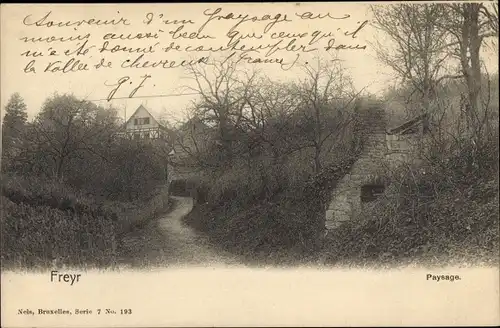 Souvenir d'un paysage au
moins aussi beau que ceux qu'il
m'a été donné de contempler dans
la Vallée de chevreuse (France)
G. J.
Freyr
Paysage.
Nels, Bruxelles, Serie 7 No. 193